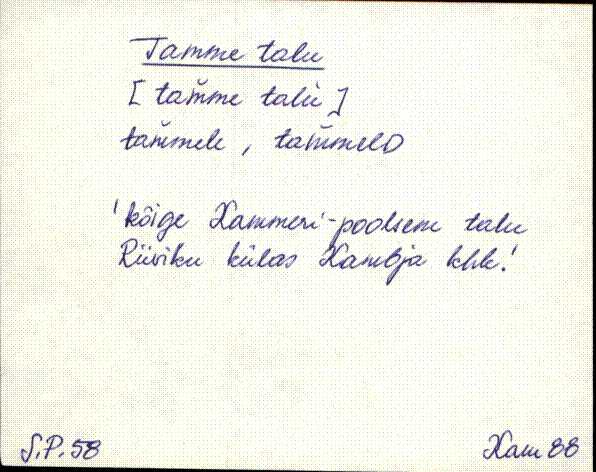 Tamme talu
[tam̆me talù]
tam̆mele, tam̆melD
'kõige Kammeri-poolsem talu
Riiviku külas Kambja khk.'
S.P. 58
Kam 88